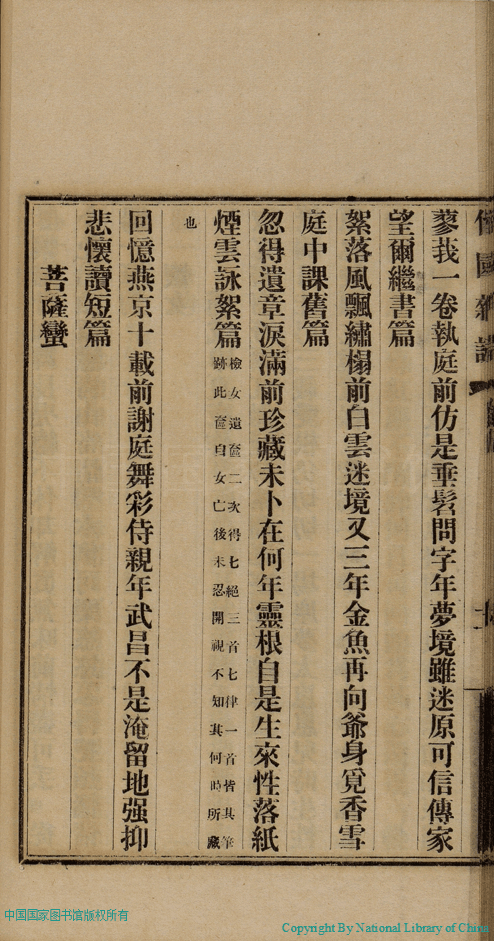 蓼莪一卷執庭前仿是垂髫問字年夢境雖迷原可信傳家
望爾繼書篇
絮落風飄繡榻前白雲迷境又三年金魚再向爺身覓香雪
庭中課舊篇
忽得遺章淚滿前珍藏未卜在何年靈根自是生來性落紙
煙雲詠絮篇檢女遺奩二次得七絕三首七律一首皆其筆
跡此奩自女亡後未忍開視不知其何時所藏
也
回憶燕京十載前謝庭舞彩侍親年武昌不是淹留地强抑
悲懷讀短篇
菩薩蠻
中国国家图书馆版权所有
Copyright By National Library of China